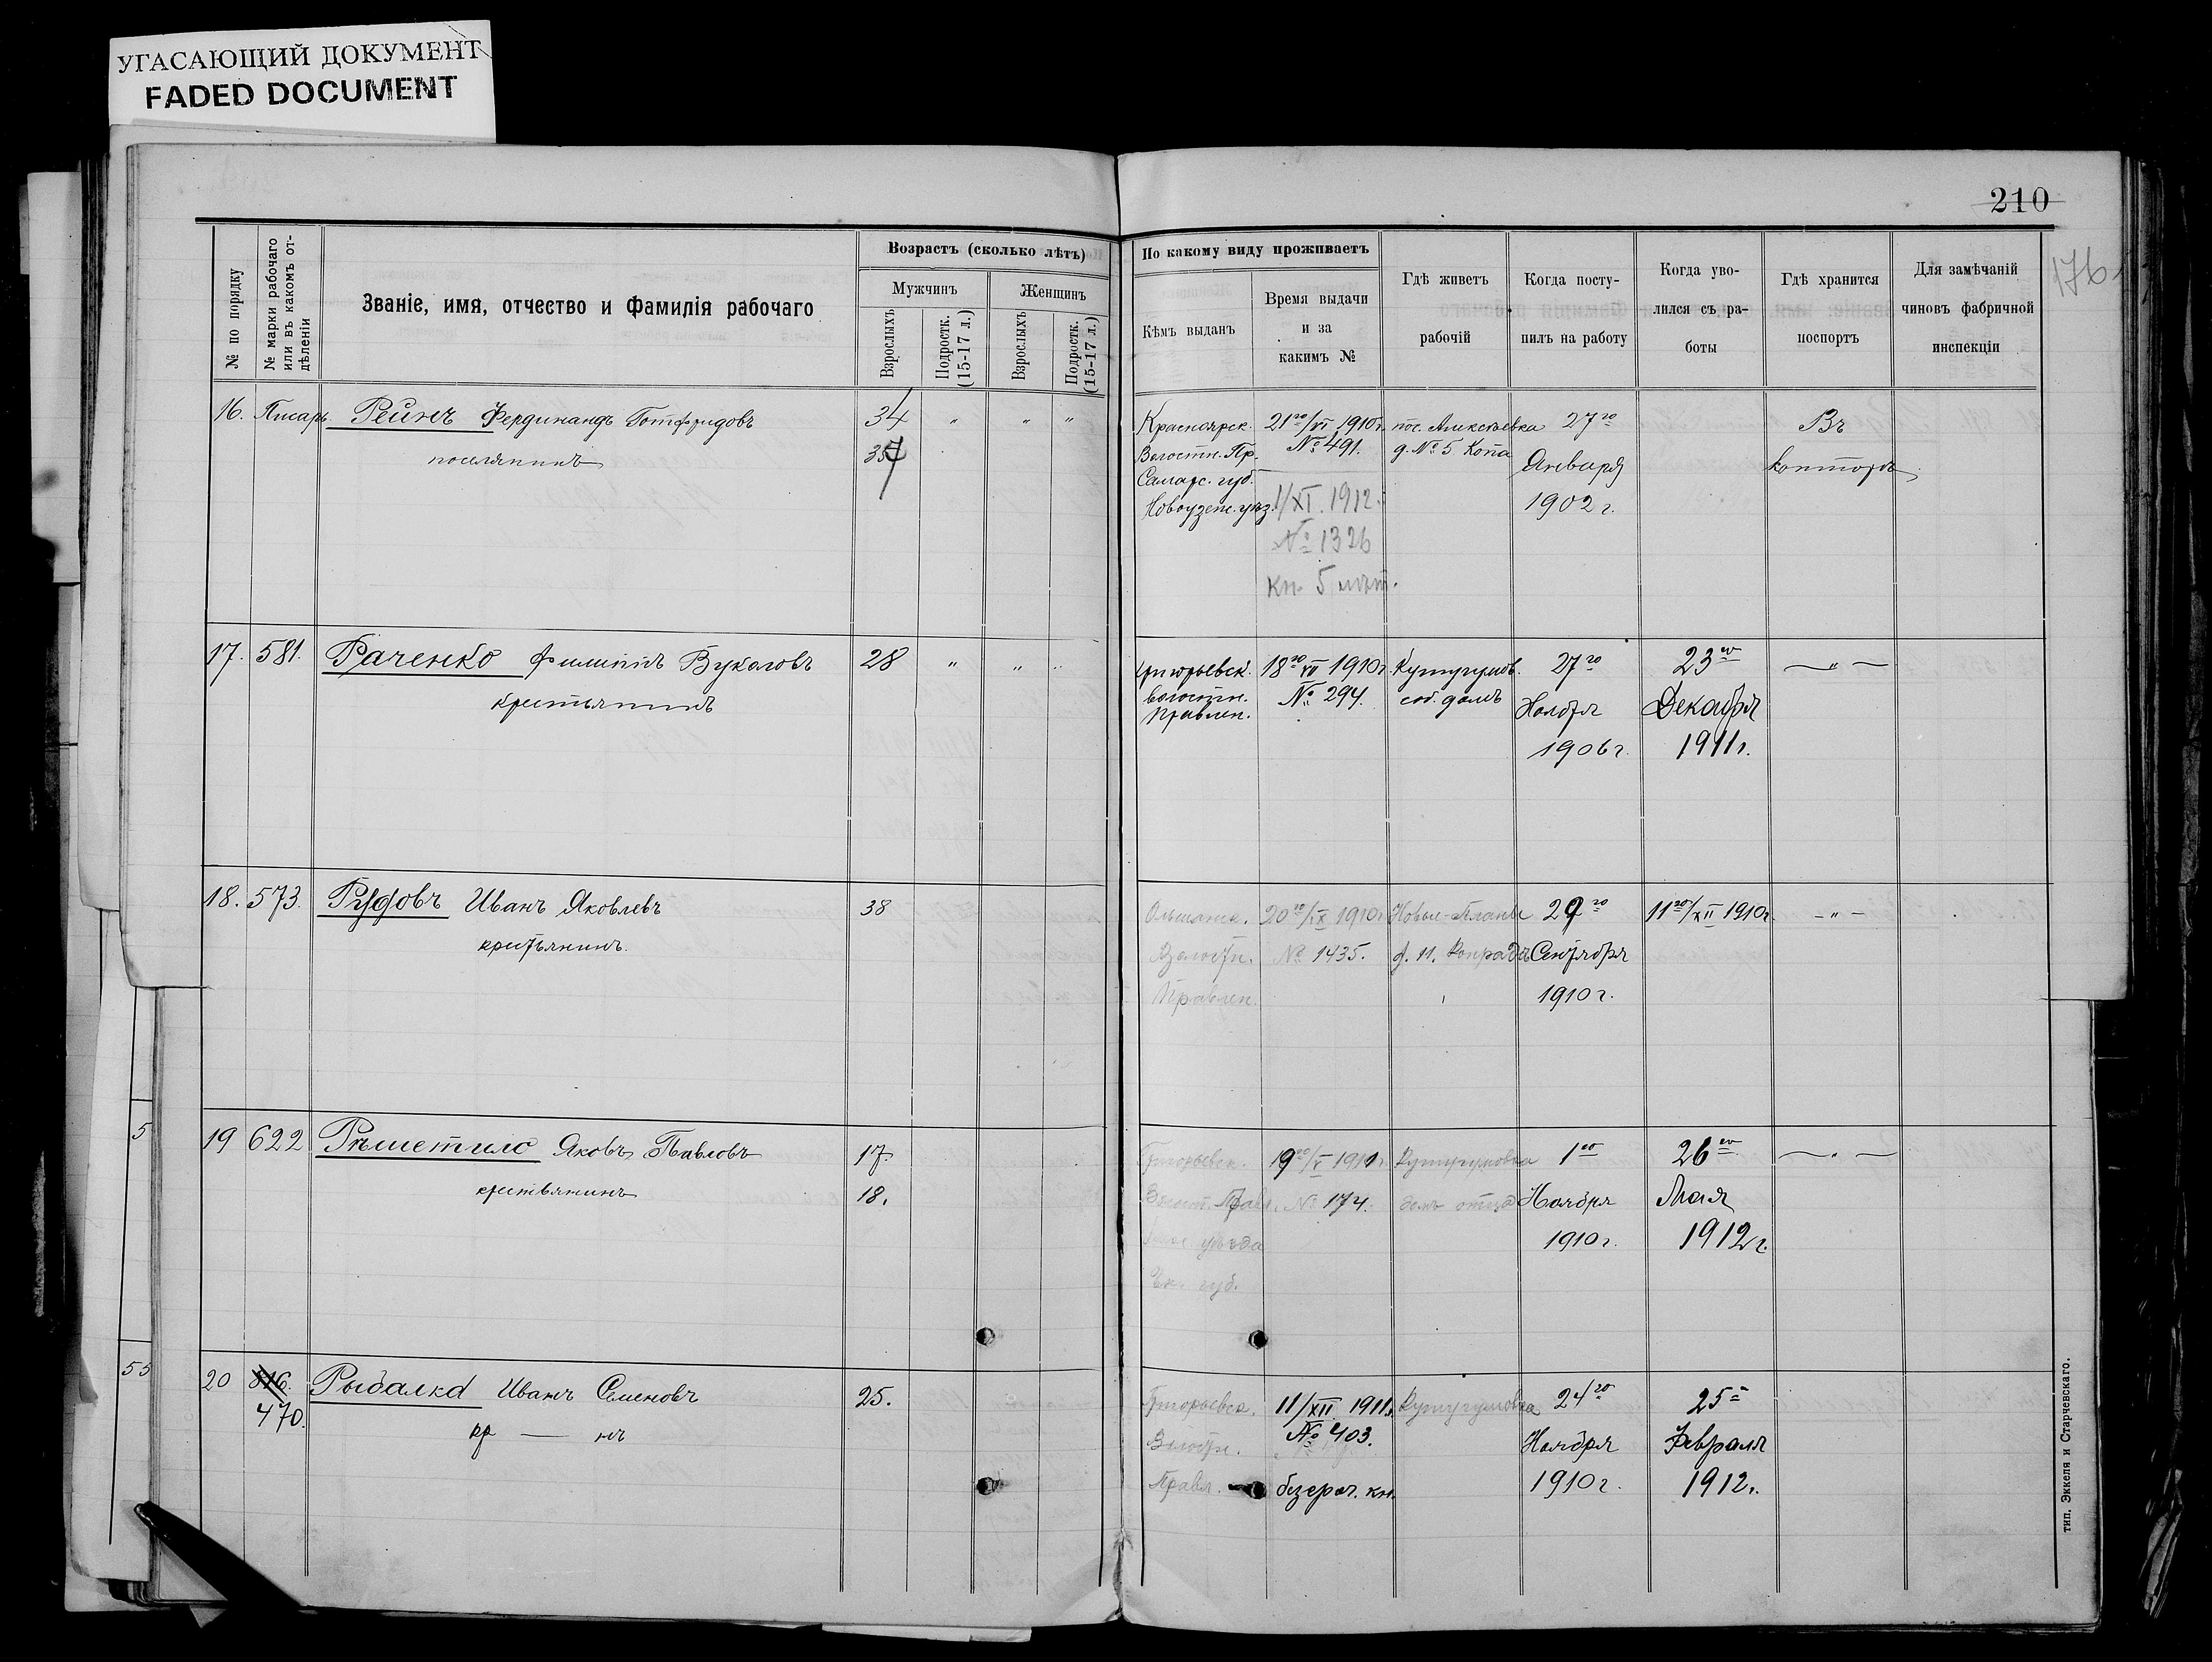 УГАСАЮЩИЙ ДОКУМЕНТ
FADED DOCUMENT
210
176
№ по порядку
№ марки рабочаго или въ какомъ отдѣленіи
Званіе, имя, отчество и фамилія рабочаго
Возрастъ (сколько лѣтъ)
Мужчинъ
Женщинъ
Взрослыхъ
Подростк. (15-17 л.)
Взрослыхъ
Подростк. (15-17 л.)
По какому виду проживаетъ
Кѣмъ выданъ
Время выдачи
и за
какимъ №
Гдѣ живетъ
рабочій
Когда посту-
пилъ на работу
Когда уво-
лился съ ра-
боты
Гдѣ хранится
поспортъ
Для замѣчаній
чиновъ фабричной
инспекціи
16. Писарь Рейнъ Фердинандъ Готфридовъ 34 " " "
поселянинъ 35
Красноярск. 21го/VI 1910г. пос. Алексѣевка 27го Въ
Волостн. Пр. № 491. д. № 5 Копа Января конторѣ
Самарс. губ.
Новоузен. уѣз. 1/XI. 1912. 1902 г.
№ 1326
кн. 5 лѣт.
17. 581. Раченко Филиппъ Вукаловъ 28 " " "
крестьянинъ
Григорьевск. 18го/XII 1910г. Кушугумов. 27го 23го — " —
волостн. № 294. соб. домъ Ноября Декабря
Правлен. 1906 г. 1911 г.
18. 573. Руфовъ Иванъ Яковлевъ 38
крестьянинъ.
Ольшанс. 20го/IX 1910г. Новые-Планы 29го 11го/XII 1910г. — " —
Волостн. № 1435. Сентября
Правлен. 1910 г.
19 622 Рѣшетило Яковъ Павловъ 17.
крестьянинъ 18.
Григорьевск. 19го/V 1911г. Кушугумовка 1го 26го — " —
Волост. Правл. № 174. домъ отца Ноября Мая
уѣзда 1910 г. 1912 г.
Ек. губ.
20 816. Рыбалка Иванъ Семеновъ 25.
470. кр — нъ
Григорьевск. 11/XII 1911г. Кушугумовка 24го 25го
Волостн. № 403. Ноября Февраля
Правл. безсроч. кн. 1910 г. 1912 г.
5
55
тип. Эккеля и Старчевскаго.